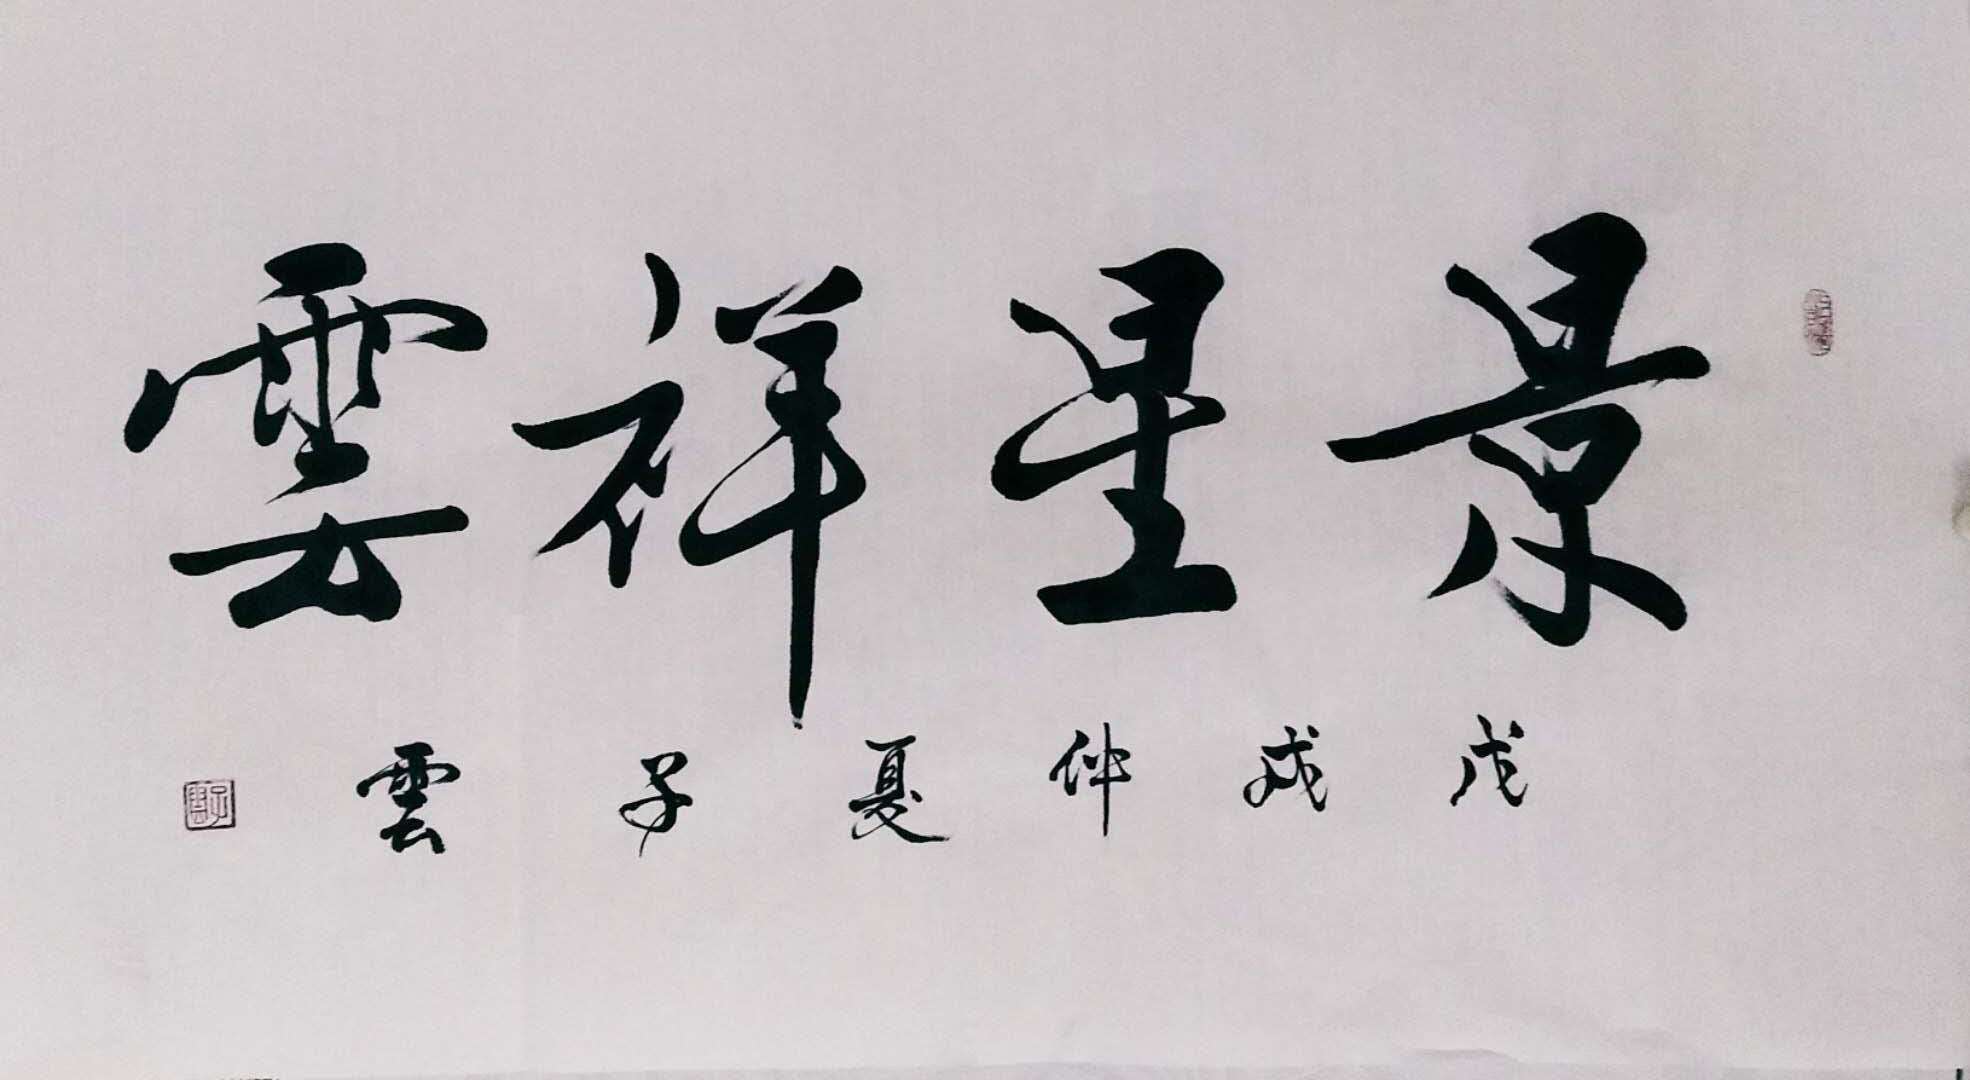 景星祥雲
戊戌仲夏子雲